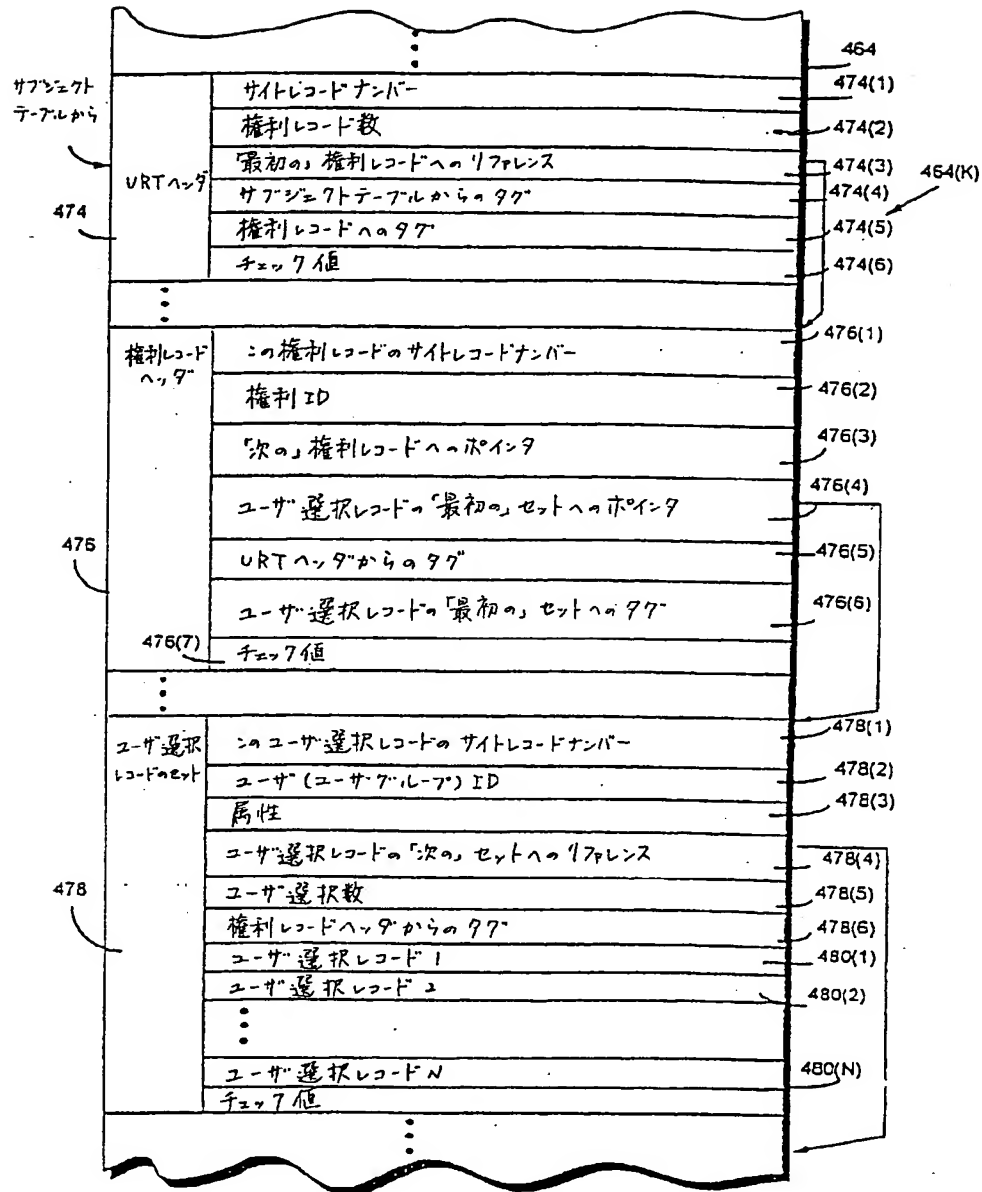 464
サブジェクト
テーブルから
URTヘッダ
474
サイトレコードナンバー
474(1)
権利レコード数
474(2)
「最初の」権利レコードへのリファレンス
474(3)
サブジェクトテーブルからのタグ
474(4)
464(K)
権利レコードへのタグ
474(5)
チェック値
474(6)
権利レコード
ヘッダ
この権利レコードのサイトレコードナンバー
476(1)
権利ID
476(2)
「次の」権利レコードへのポインタ
476(3)
ユーザ選択レコードの「最初の」セットへのポインタ
476(4)
476
URTヘッダからのタグ
476(5)
ユーザ選択レコードの「最初の」セットへのタグ
476(6)
476(7)
チェック値
ユーザ選択
レコードのセット
このユーザ選択レコードのサイトレコードナンバー
478(1)
ユーザ(ユーザグループ)ID
478(2)
属性
478(3)
ユーザ選択レコードの「次の」セットへのリファレンス
478(4)
478
ユーザ選択数
478(5)
権利レコードヘッダからのタグ
478(6)
ユーザ選択レコード1
480(1)
ユーザ選択レコード2
480(2)
ユーザ選択レコードN
480(N)
チェック値